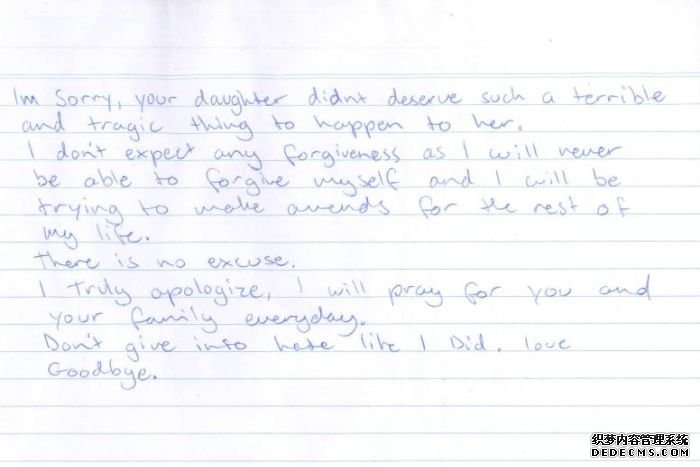 Im Sorry, your daughter didnt deserve such a terrible
and tragic thing to happen to her.
I don't expect any forgiveness as I will never
be able to forgive myself and I will be
trying to make amends for the rest of
my life.
there is no excuse.
I truly apologize, I will pray for you and
your family everyday.
Don't give into hate like I Did. love
Goodbye.
织梦内容管理系统
DEDECMS.COM